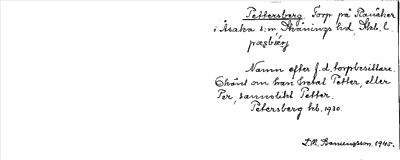 Pettersberg. Torp på Ranåker
i Åsaka s:n Skånings hd, Skb. l.
pæsbærj
Namn efter f.d. torpbesittare.
Okänt om han hetat Petter, eller
Per, sannolikt Petter.
Petersberg kb. 1920.
1945.